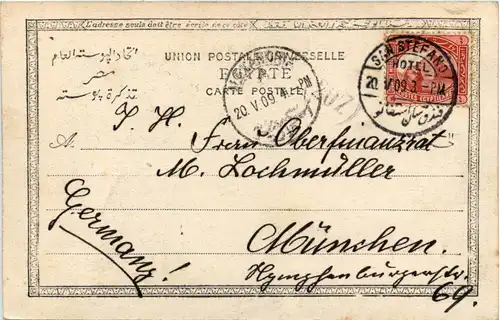 L'adresse seule doit être écrite de ce côté
اتحاد البوسته العام
مصر
تذكرة بوسته
UNION POSTALE UNIVERSELLE
EGYPTE
CARTE POSTALE
20. V. 09. PM
SAN STEFANO
HOTEL
20. V 09. PM
POSTES EGYPTIENNES
A.
Oberfinanzrat
M. Lochmüller
München.
Nymphenburgerstr.
69.
Germany!